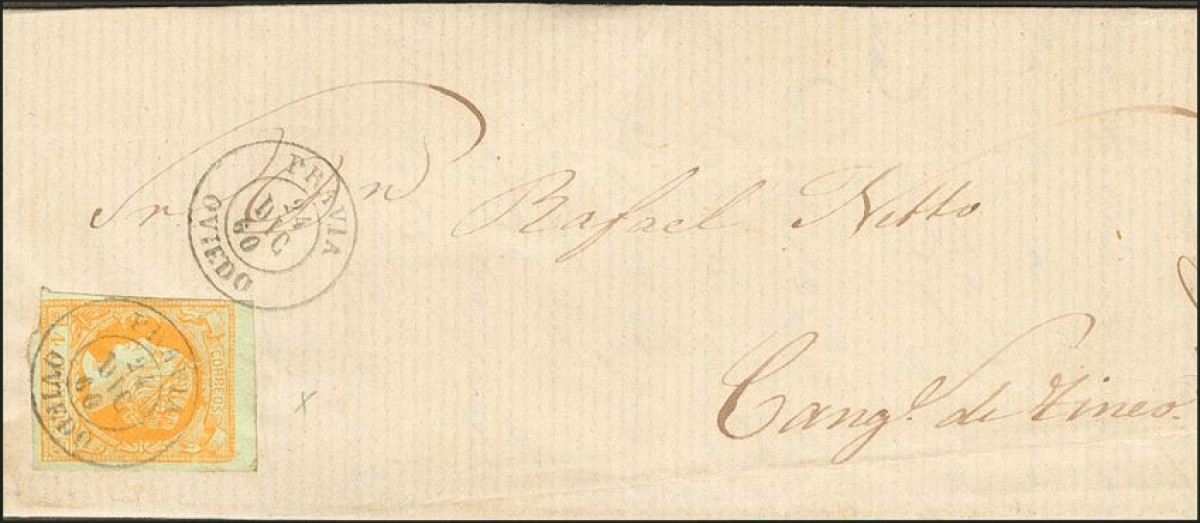 Sr. Don Rafael Nitto
Cang.^s de Tineo.
PRAVIA
24
DIC
60
OVIEDO
CORREOS
PRAVIA
24
DIC
60
OVIEDO